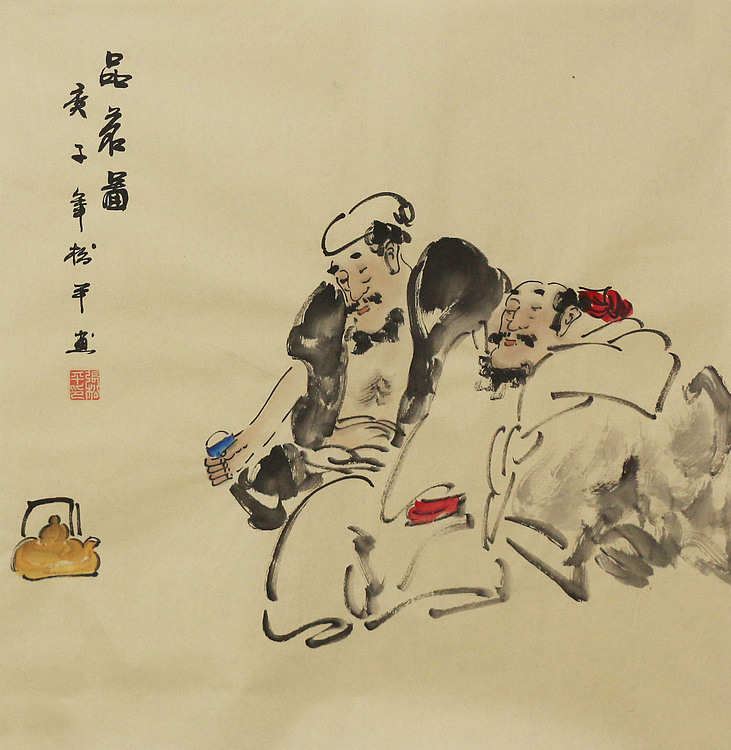 品茗圖
庚子年松平画